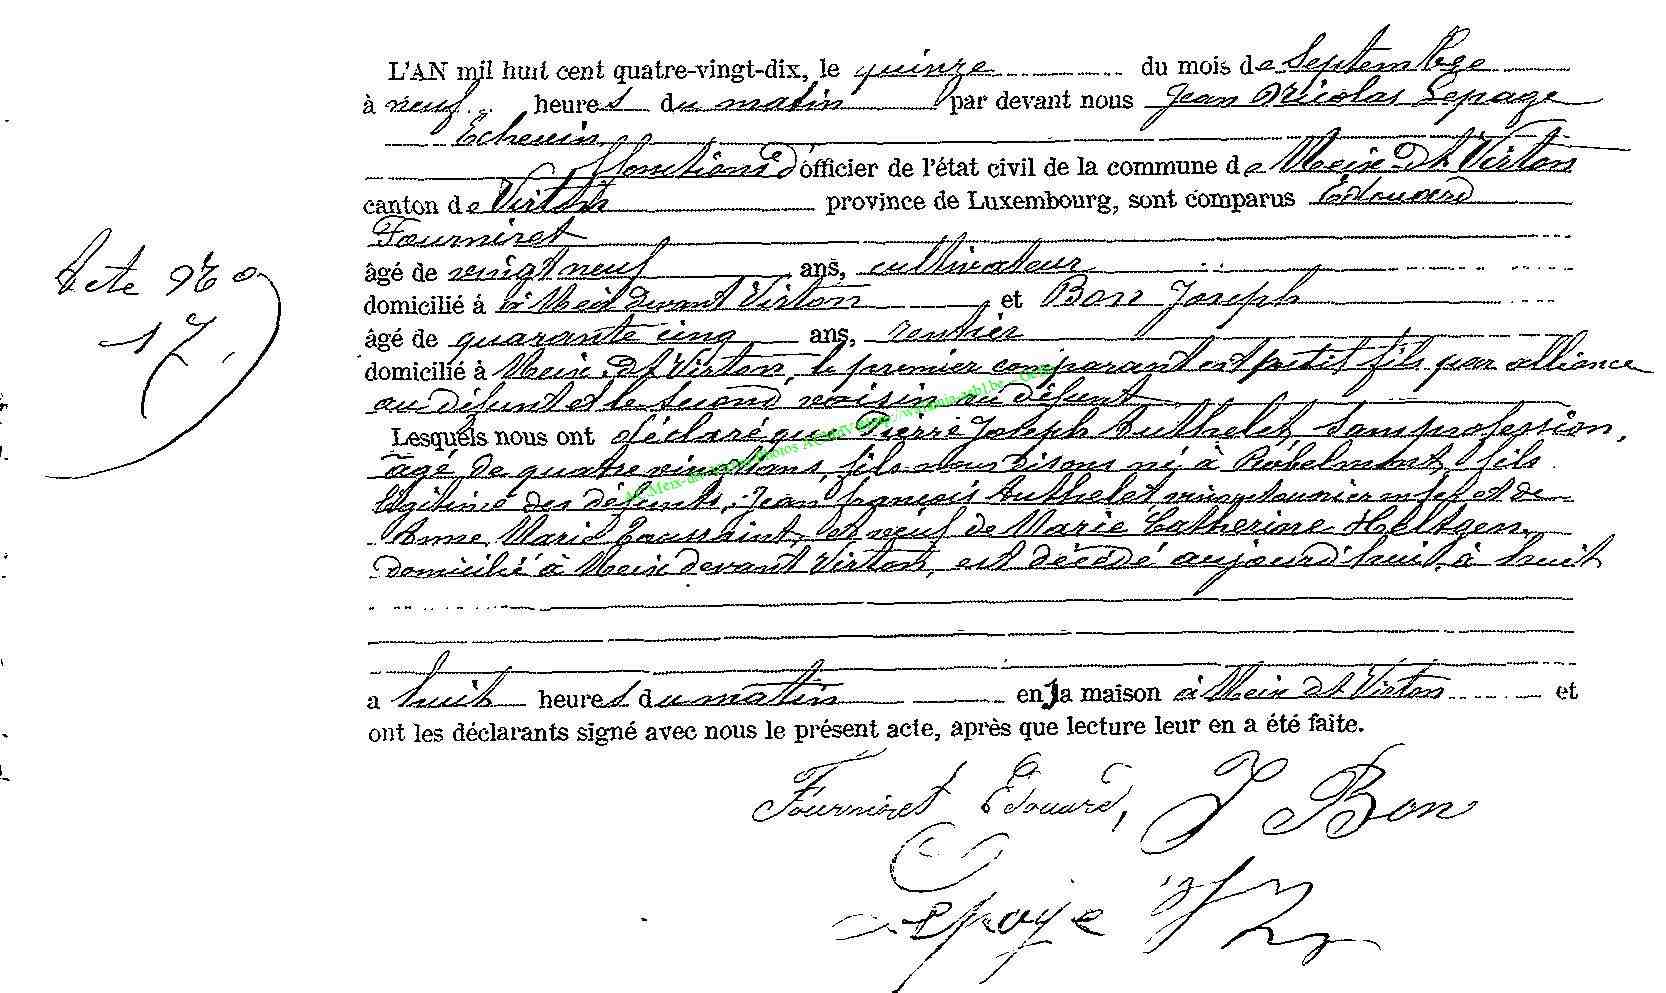 L'AN mil huit cent quatre-vingt-dix, le quinze du mois de Septembre
à neuf heures du matin par devant nous Jean Nicolas Lepage
Echevin
fonctions d'officier de l'état civil de la commune de Meix dt Virton
canton de Virton province de Luxembourg, sont comparus Edouard
Fourniret
âgé de vingt neuf ans, cultivateur
domicilié à à Meix devant Virton et Bon Joseph
âgé de quarante cinq ans, rentier
domicilié à Meix dt Virton, le premier comparant est petit fils par alliance
au défunt et le second voisin au défunt
Lesquels nous ont déclaré que Pierre Joseph Authelet, sans profession,
âgé de quatre vingt ans, fils nous disons né à Robelmont, fils
légitime des défunts, Jean françois Authelet, et de
Anne Marie Toussaint, et veuf de Marie Catherine Heltgen
domicilié à Meix devant Virton, est décédé aujourd'huit, à huit
a huit heures du matin en la maison à Meix dt Virton et
ont les déclarants signé avec nous le présent acte, après que lecture leur en a été faite.
Acte No
17
Fourniret Edouard, J Bon
Lepage JN